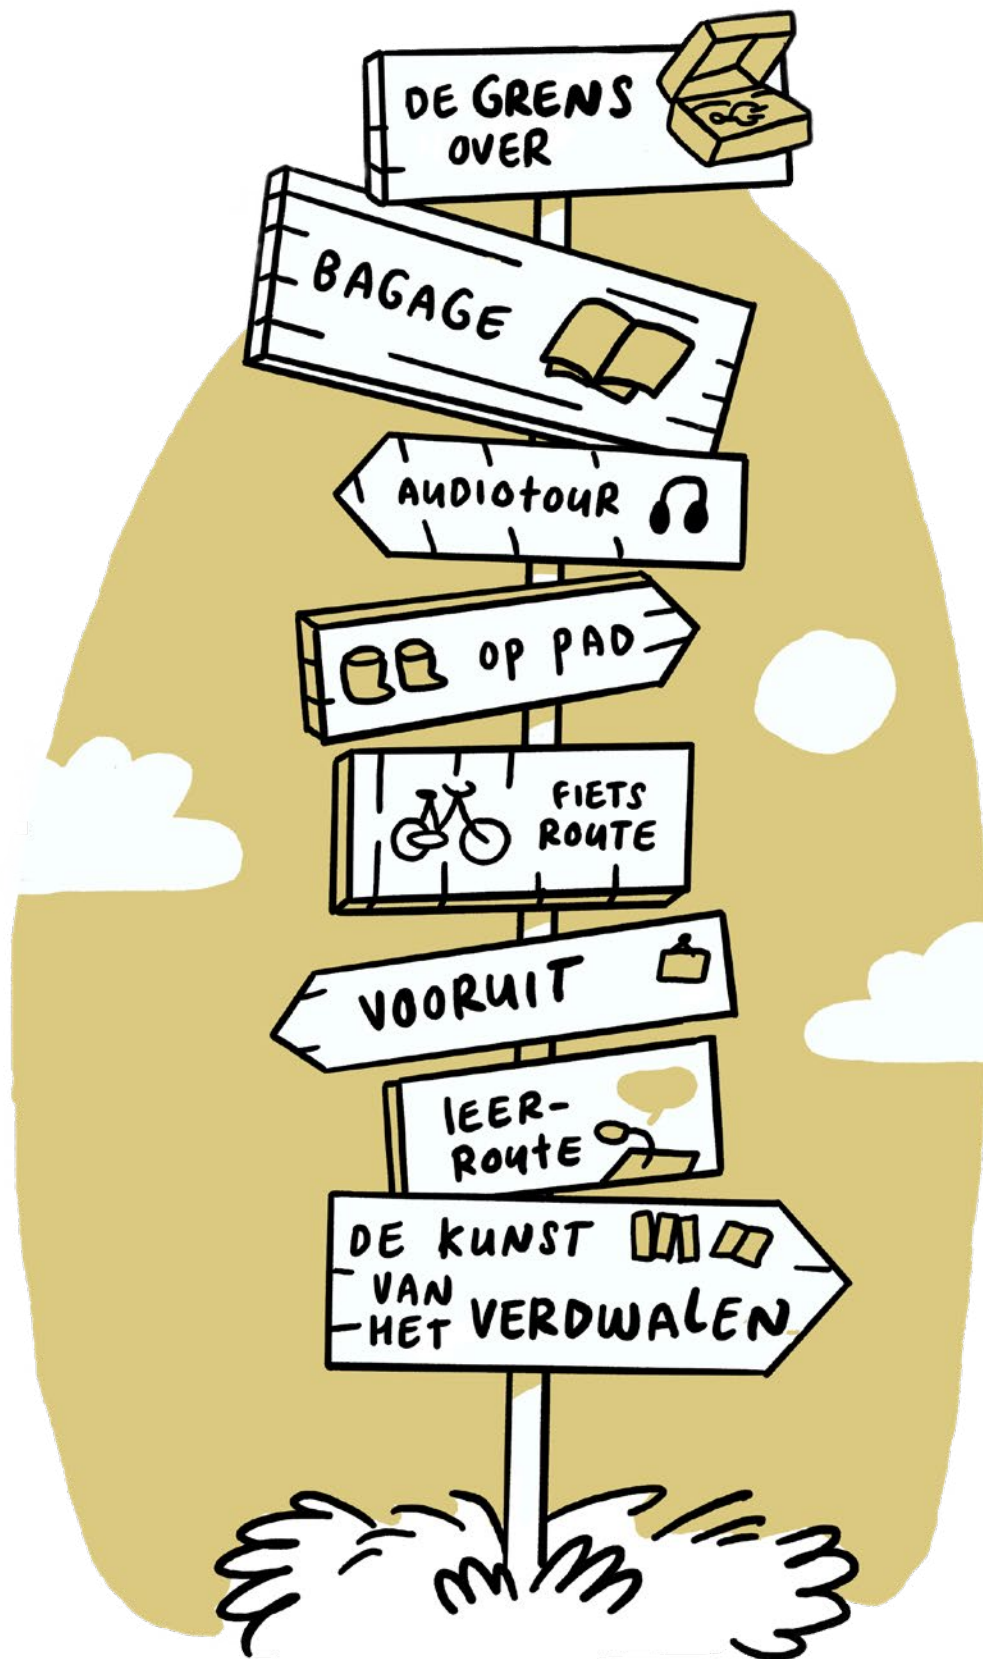 DE GRENS
OVER
BAGAGE
AUDIOTOUR
OP PAD
FIETS
ROUTE
VOORUIT
lEER-
ROUTE
DE KUNST
VAN
HET VERDWALEN